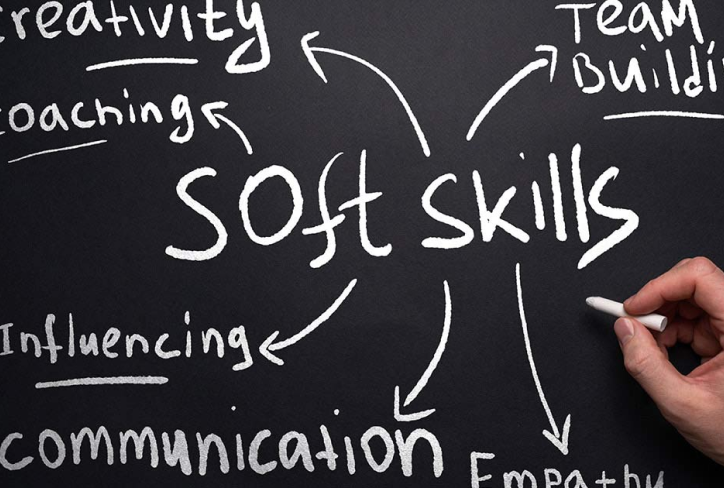 creativity
Team
Buildi
coaching
Soft skills
Influencing
communication
Empathy